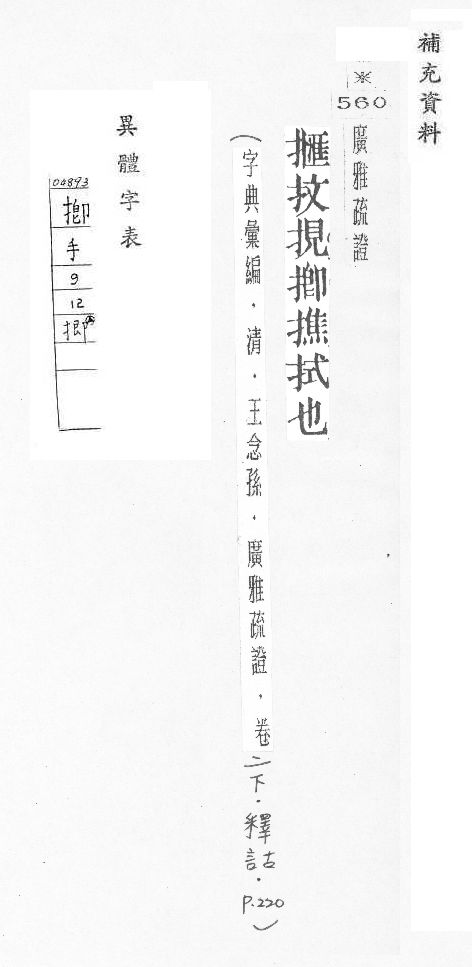 補充資料
※
560
廣雅疏證
抆挸揤撨拭也
(字典彙編．清．王念孫．廣雅疏證．卷二下．釋詁．P.220)
異體字表
04893
揤
手
9
12